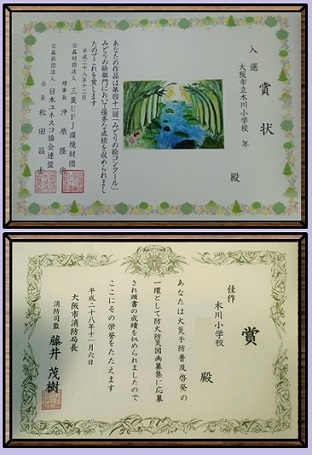 入選
賞状
大阪市立木川小学校 年
殿
あなたの作品は第四十一回「みどりの絵コンクール」
みどりの絵部門において優秀な成績を収められまし
たのでこれを賞します
平成二十八年十二月
公益財団法人 三菱UFJ環境財団
理事長 沖原隆宗
公益社団法人 日本ユネスコ協会連盟
会長 松田昌士
佳作
賞
木川小学校
殿
あなたは火災予防普及啓発の
一環として防火防災図画募集に応募
され頭書の成績を収められましたので
ここにその栄誉をたたえます
平成二十八年十一月六日
大阪市消防局長
消防司監 藤井茂樹